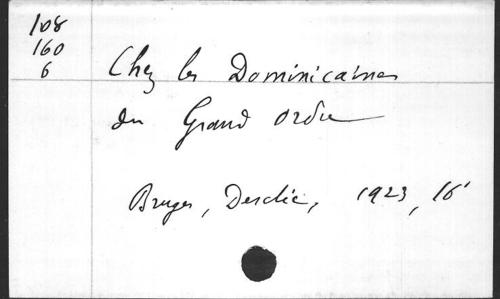 108
160
6
Chez les Dominicaines
du Grand Ordre
Bruges, Desclée, 1923, 16°